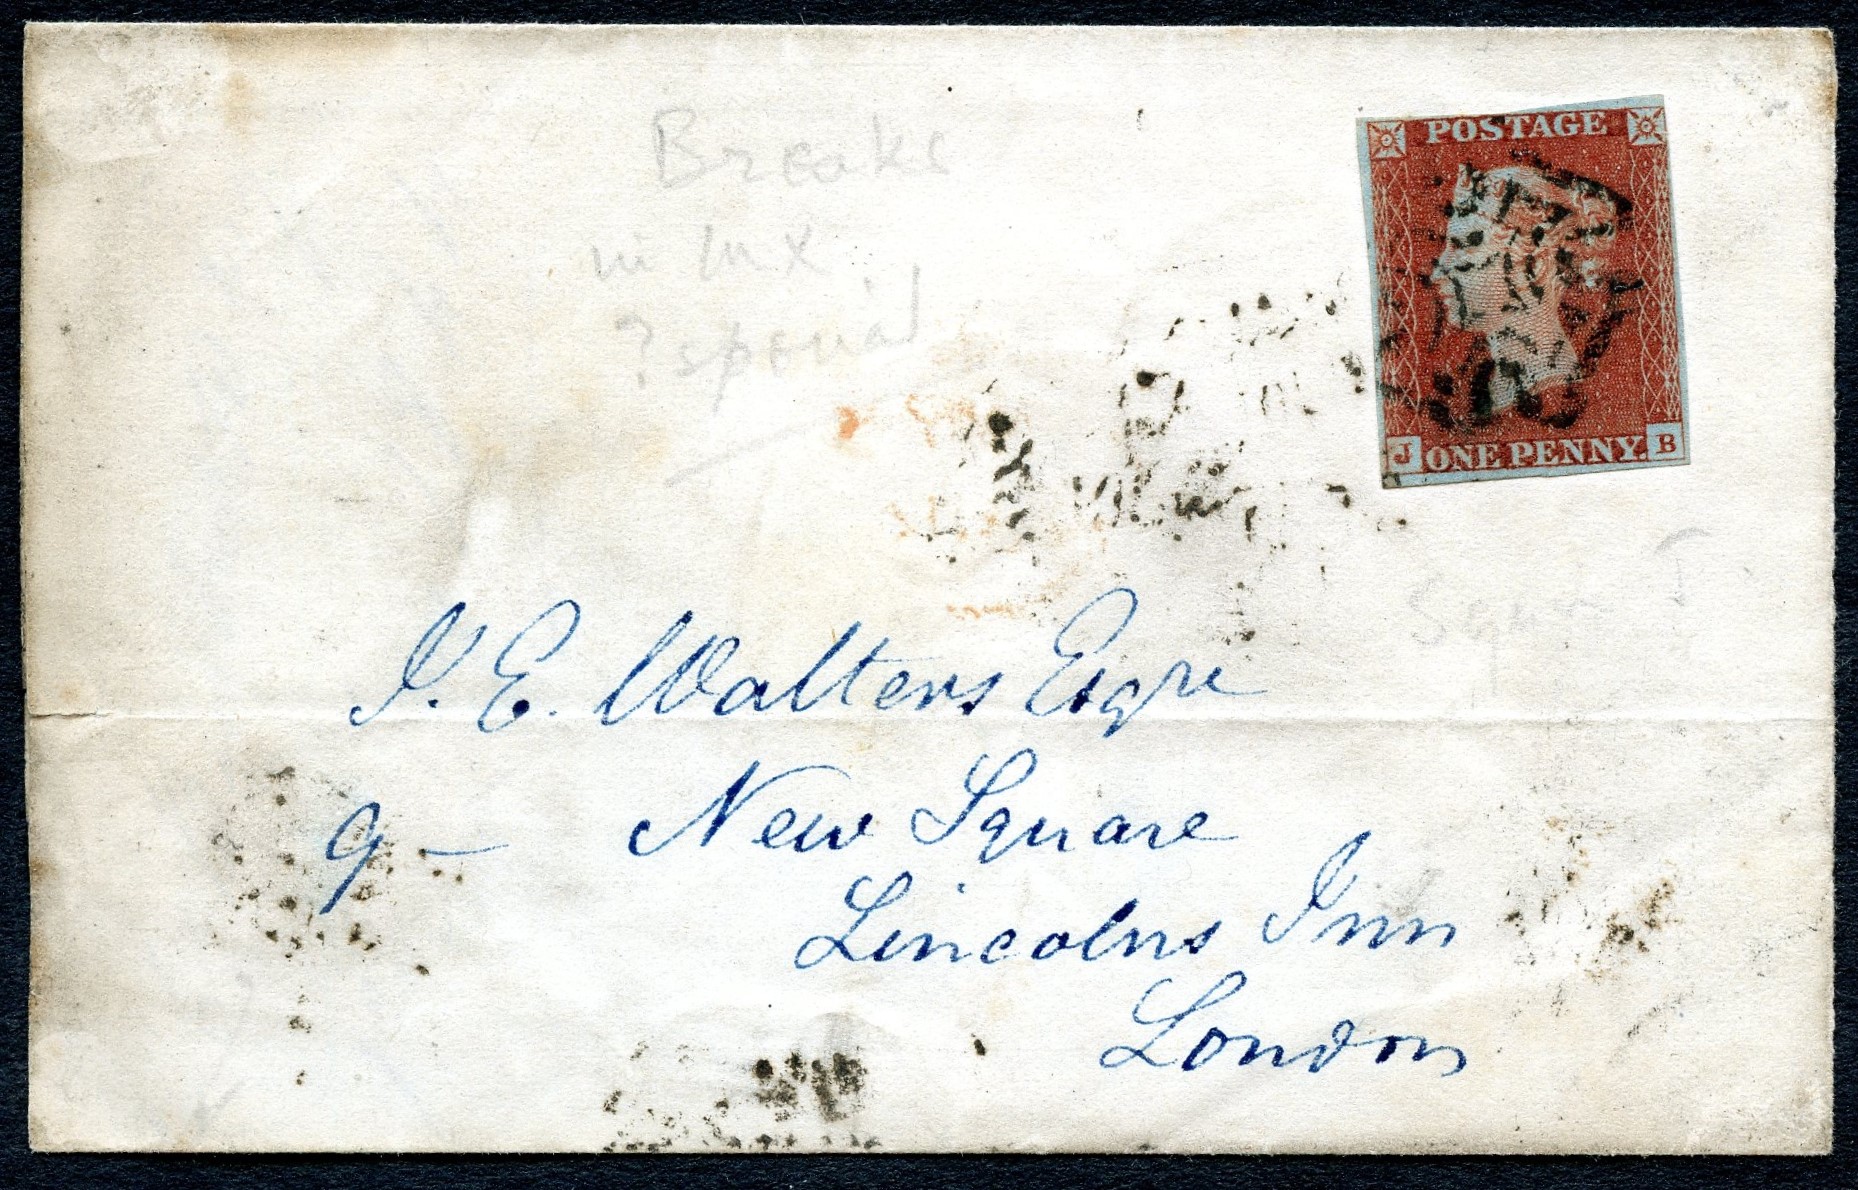 Breaks
in MX
? special
POSTAGE
J ONE PENNY. B
J. E. Walters Esqre
9 – New Square
Lincolns Inn
London